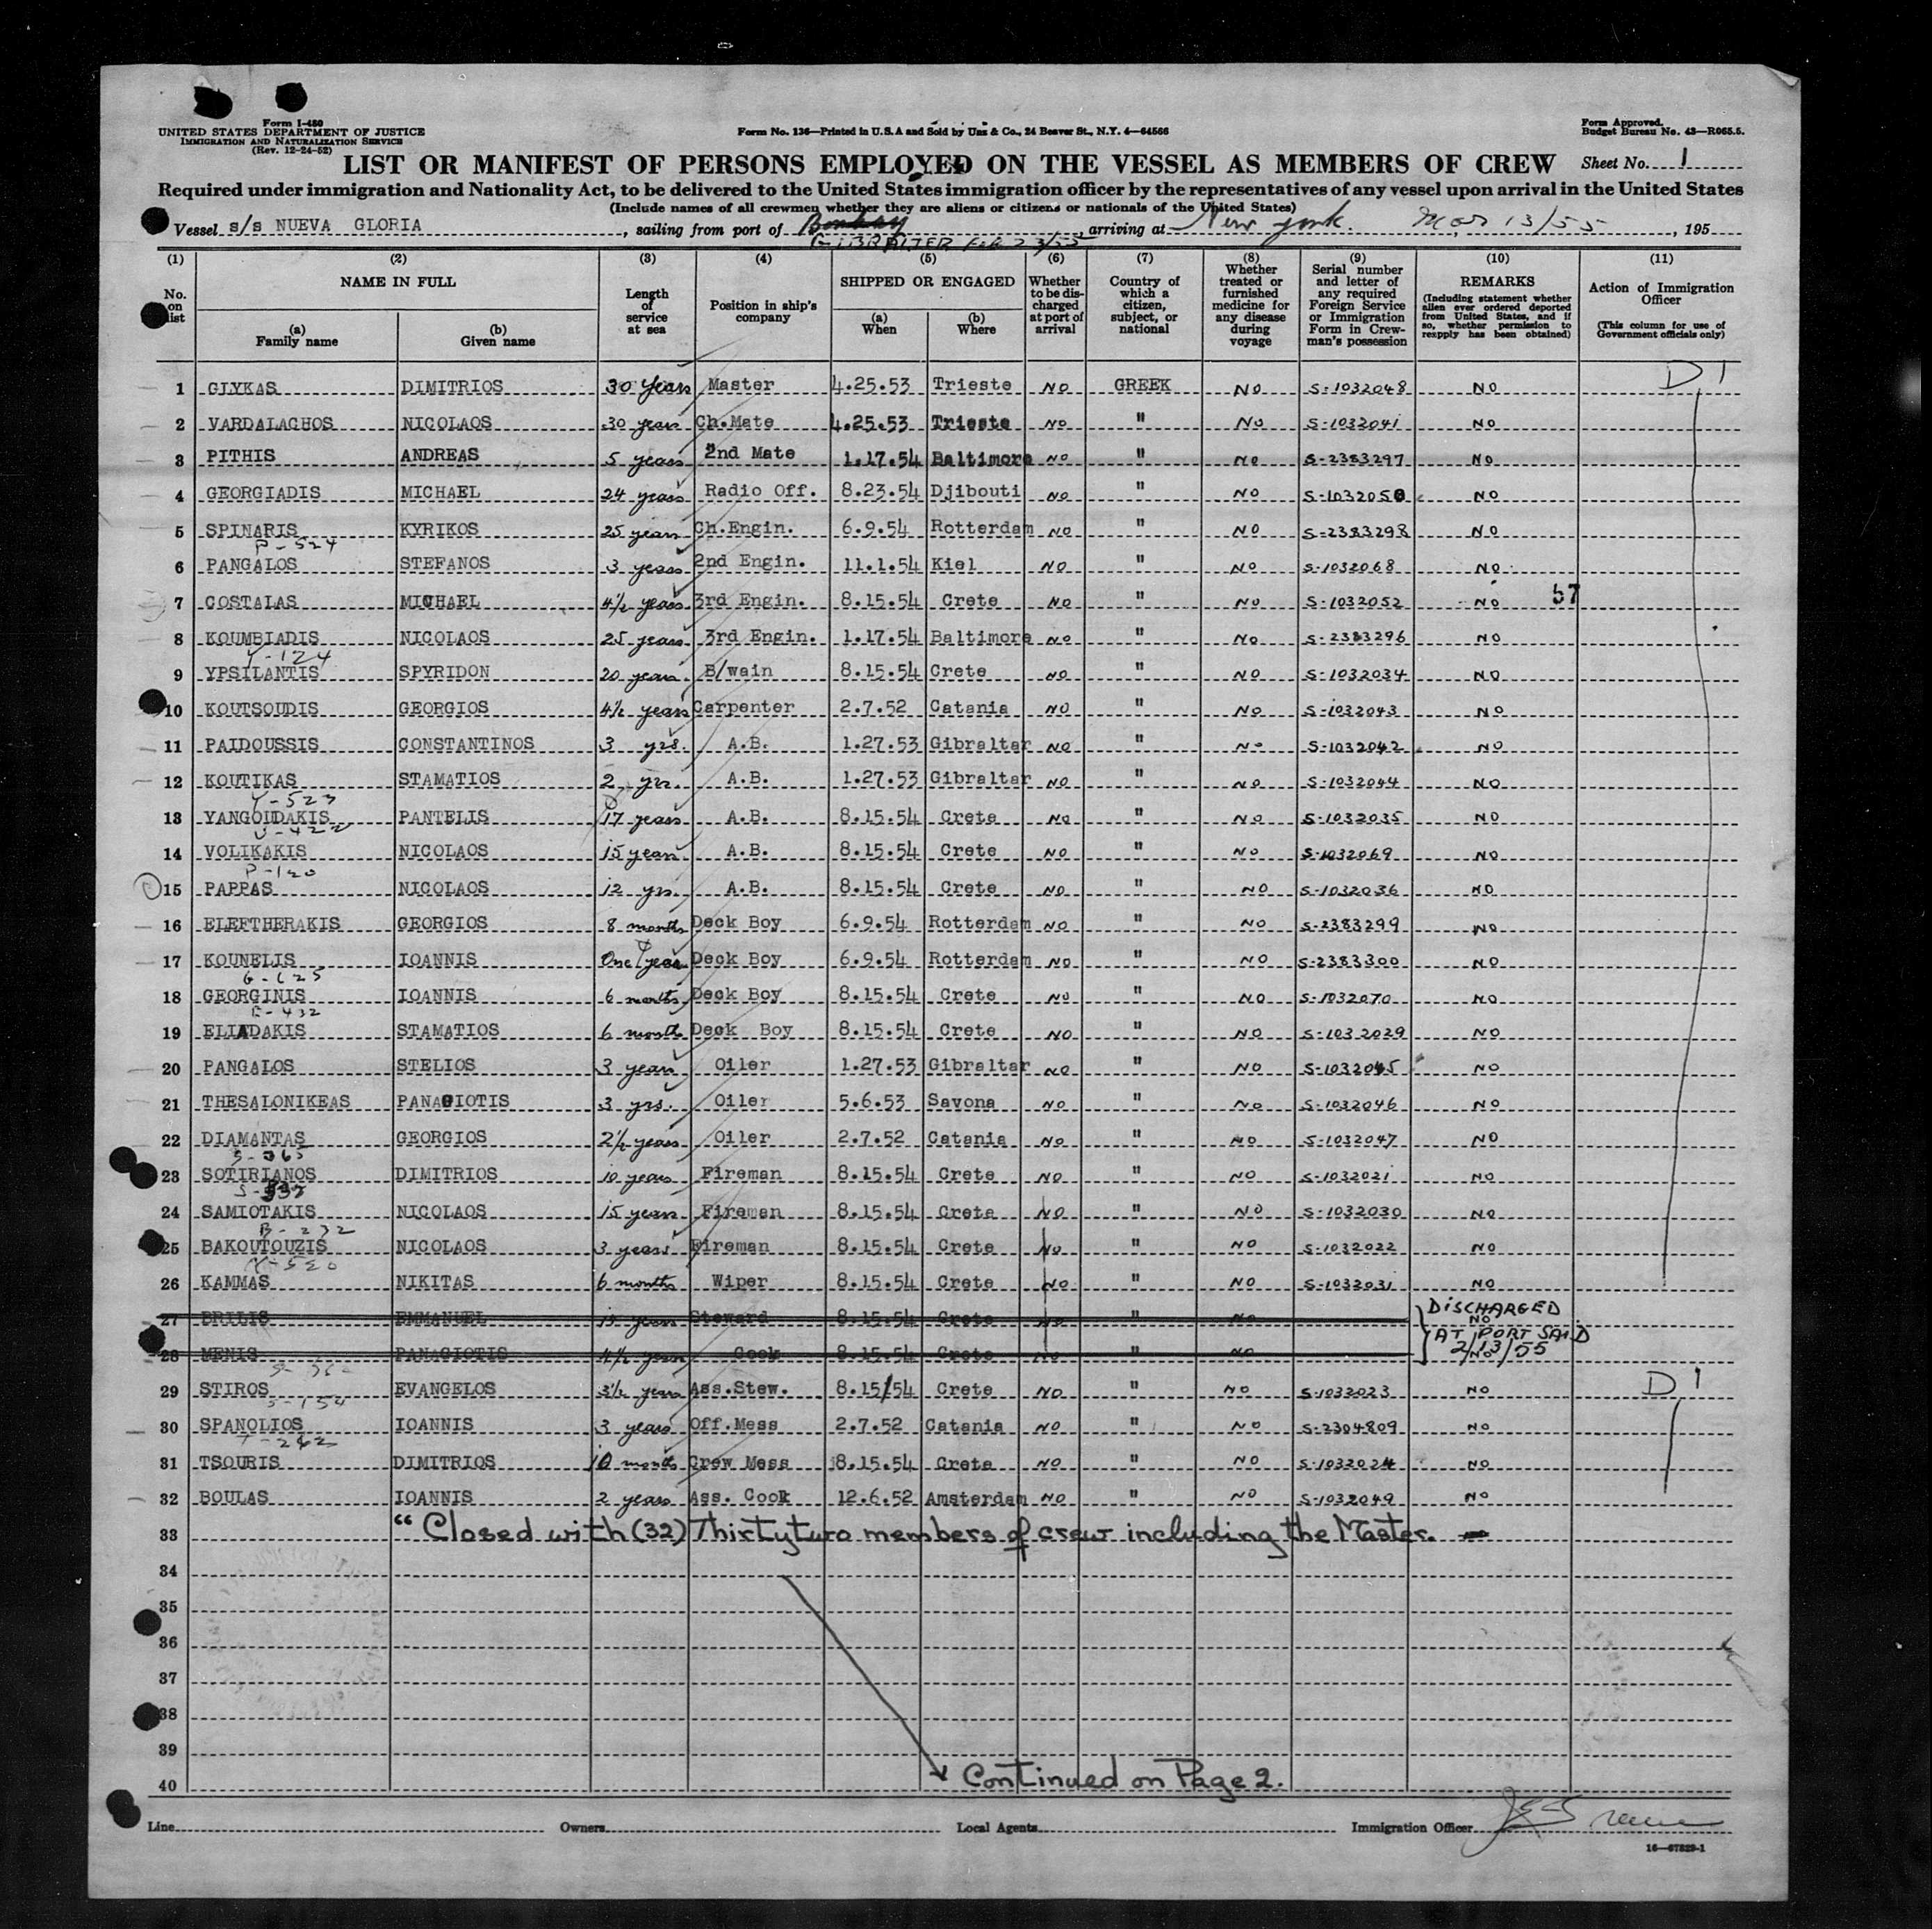 Form I-480
UNITED STATES DEPARTMENT OF JUSTICE
IMMIGRATION AND NATURALIZATION SERVICE
(Rev. 12-24-52)
Form No. 136—Printed in U.S.A and Sold by Unz & Co., 24 Beaver St., N.Y. 4—64566
Form Approved.
Budget Bureau No. 43—R065.5.
LIST OR MANIFEST OF PERSONS EMPLOYED ON THE VESSEL AS MEMBERS OF CREW
Sheet No. 1
Required under immigration and Nationality Act, to be delivered to the United States immigration officer by the representatives of any vessel upon arrival in the United States
(Include names of all crewmen whether they are aliens or citizens or nationals of the United States)
Vessel s/s NUEVA GLORIA, sailing from port of Bombay, arriving at New York. Mar 13/55, 195
GIBRALTER Feb 23/55
(1) (2) (3) (4) (5) (6) (7) (8) (9) (10) (11)
No. on list
NAME IN FULL
(a) Family name
(b) Given name
Length of service at sea
Position in ship's company
SHIPPED OR ENGAGED
(a) When
(b) Where
Whether to be discharged at port of arrival
Country of which a citizen, subject, or national
Whether treated or furnished medicine for any disease during voyage
Serial number and letter of any required Foreign Service or Immigration Form in Crewman's possession
REMARKS
(Including statement whether alien ever ordered deported from United States, and if so, whether permission to reapply has been obtained)
Action of Immigration Officer
(This column for use of Government officials only)
1 GLYKAS DIMITRIOS 30 years Master 4.25.53 Trieste NO GREEK NO S-1032048 NO D 1
2 VARDALACHOS NICOLAOS 30 years Ch.Mate 4.25.53 Trieste NO " NO S-1032041 NO
3 PITHIS ANDREAS 5 years 2nd Mate 1.17.54 Baltimore NO " NO S-2383297 NO
4 GEORGIADIS MICHAEL 24 years Radio Off. 8.23.54 Djibouti NO " NO S-1032050 NO
5 SPINARIS KYRIKOS 25 years Ch.Engin. 6.9.54 Rotterdam NO " NO S-2383298 NO
P-524
6 PANGALOS STEFANOS 3 years 2nd Engin. 11.1.54 Kiel NO " NO S-1032068 NO
7 COSTALAS MICHAEL 4½ years 3rd Engin. 8.15.54 Crete NO " NO S-1032052 NO 57
8 KOUMBIADIS NICOLAOS 25 years 3rd Engin. 1.17.54 Baltimore NO " NO S-2383296 NO
Y-124
9 YPSILANTIS SPYRIDON 20 years. B/wain 8.15.54 Crete NO " NO S-1032034 NO
10 KOUTSOUDIS GEORGIOS 4½ years Carpenter 2.7.52 Catania NO " NO S-1032043 NO
11 PAIDOUSSIS CONSTANTINOS 3 yrs. A.B. 1.27.53 Gibraltar NO " NO S-1032042 NO
12 KOUTIKAS STAMATIOS 2 yrs. A.B. 1.27.53 Gibraltar NO " NO S-1032044 NO
Y-523
13 YANGOUDAKIS PANTELIS 17 years A.B. 8.15.54 Crete NO " NO S-1032035 NO
V-422
14 VOLIKAKIS NICOLAOS 15 years A.B. 8.15.54 Crete NO " NO S-1032069 NO
P-120
15 PAPPAS NICOLAOS 12 yrs. A.B. 8.15.54 Crete NO " NO S-1032036 NO
16 ELEFTHERAKIS GEORGIOS 8 months Deck Boy 6.9.54 Rotterdam NO " NO S-2383299 NO
17 KOUNELIS IOANNIS One year Deck Boy 6.9.54 Rotterdam NO " NO S-2383300 NO
G-625
18 GEORGINIS IOANNIS 6 months Deck Boy 8.15.54 Crete NO " NO S-1032070 NO
E-432
19 ELIADAKIS STAMATIOS 6 months Deck Boy 8.15.54 Crete NO " NO S-1032029 NO
20 PANGALOS STELIOS 3 years Oiler 1.27.53 Gibraltar NO " NO S-1032045 NO
21 THESALONIKEAS PANAGIOTIS 3 yrs. Oiler 5.6.53 Savona NO " NO S-1032046 NO
22 DIAMANTAS GEORGIOS 2½ years Oiler 2.7.52 Catania NO " NO S-1032047 NO
23 SOTIRIANOS DIMITRIOS 10 years Fireman 8.15.54 Crete NO " NO S-1032021 NO
24 SAMIOTAKIS NICOLAOS 15 years Fireman 8.15.54 Crete NO " NO S-1032030 NO
B-232
25 BAKOUTOUZIS NICOLAOS 3 years Fireman 8.15.54 Crete NO " NO S-1032022 NO
K-520
26 KAMMAS NIKITAS 6 months Wiper 8.15.54 Crete NO " NO S-1032031 NO
27 BRILIS EMMANUEL 15 years Steward 8.15.54 Crete NO " NO NO
DISCHARGED
AT PORT SAID
2/13/55
28 MENIS PANAGIOTIS 4½ years Cook 8.15.54 Crete NO " NO NO
S-362
29 STIROS EVANGELOS 3½ years Ass.Stew. 8.15/54 Crete NO " NO S-1032023 NO D 1
S-154
30 SPANOLIOS IOANNIS 3 years Off.Mess 2.7.52 Catania NO " NO S-2304809 NO
T-262
31 TSOURIS DIMITRIOS 10 months Crew Mess 8.15.54 Crete NO " NO S-1032024 NO
32 BOULAS IOANNIS 2 years Ass. Cook 12.6.52 Amsterdam NO " NO S-1032049 NO
33 " Closed with (32) Thirtytwo members of crew including the Master. —
34
35
36
37
38
39
40 Continued on Page 2.
Line Owners Local Agents Immigration Officer
16—67829-1